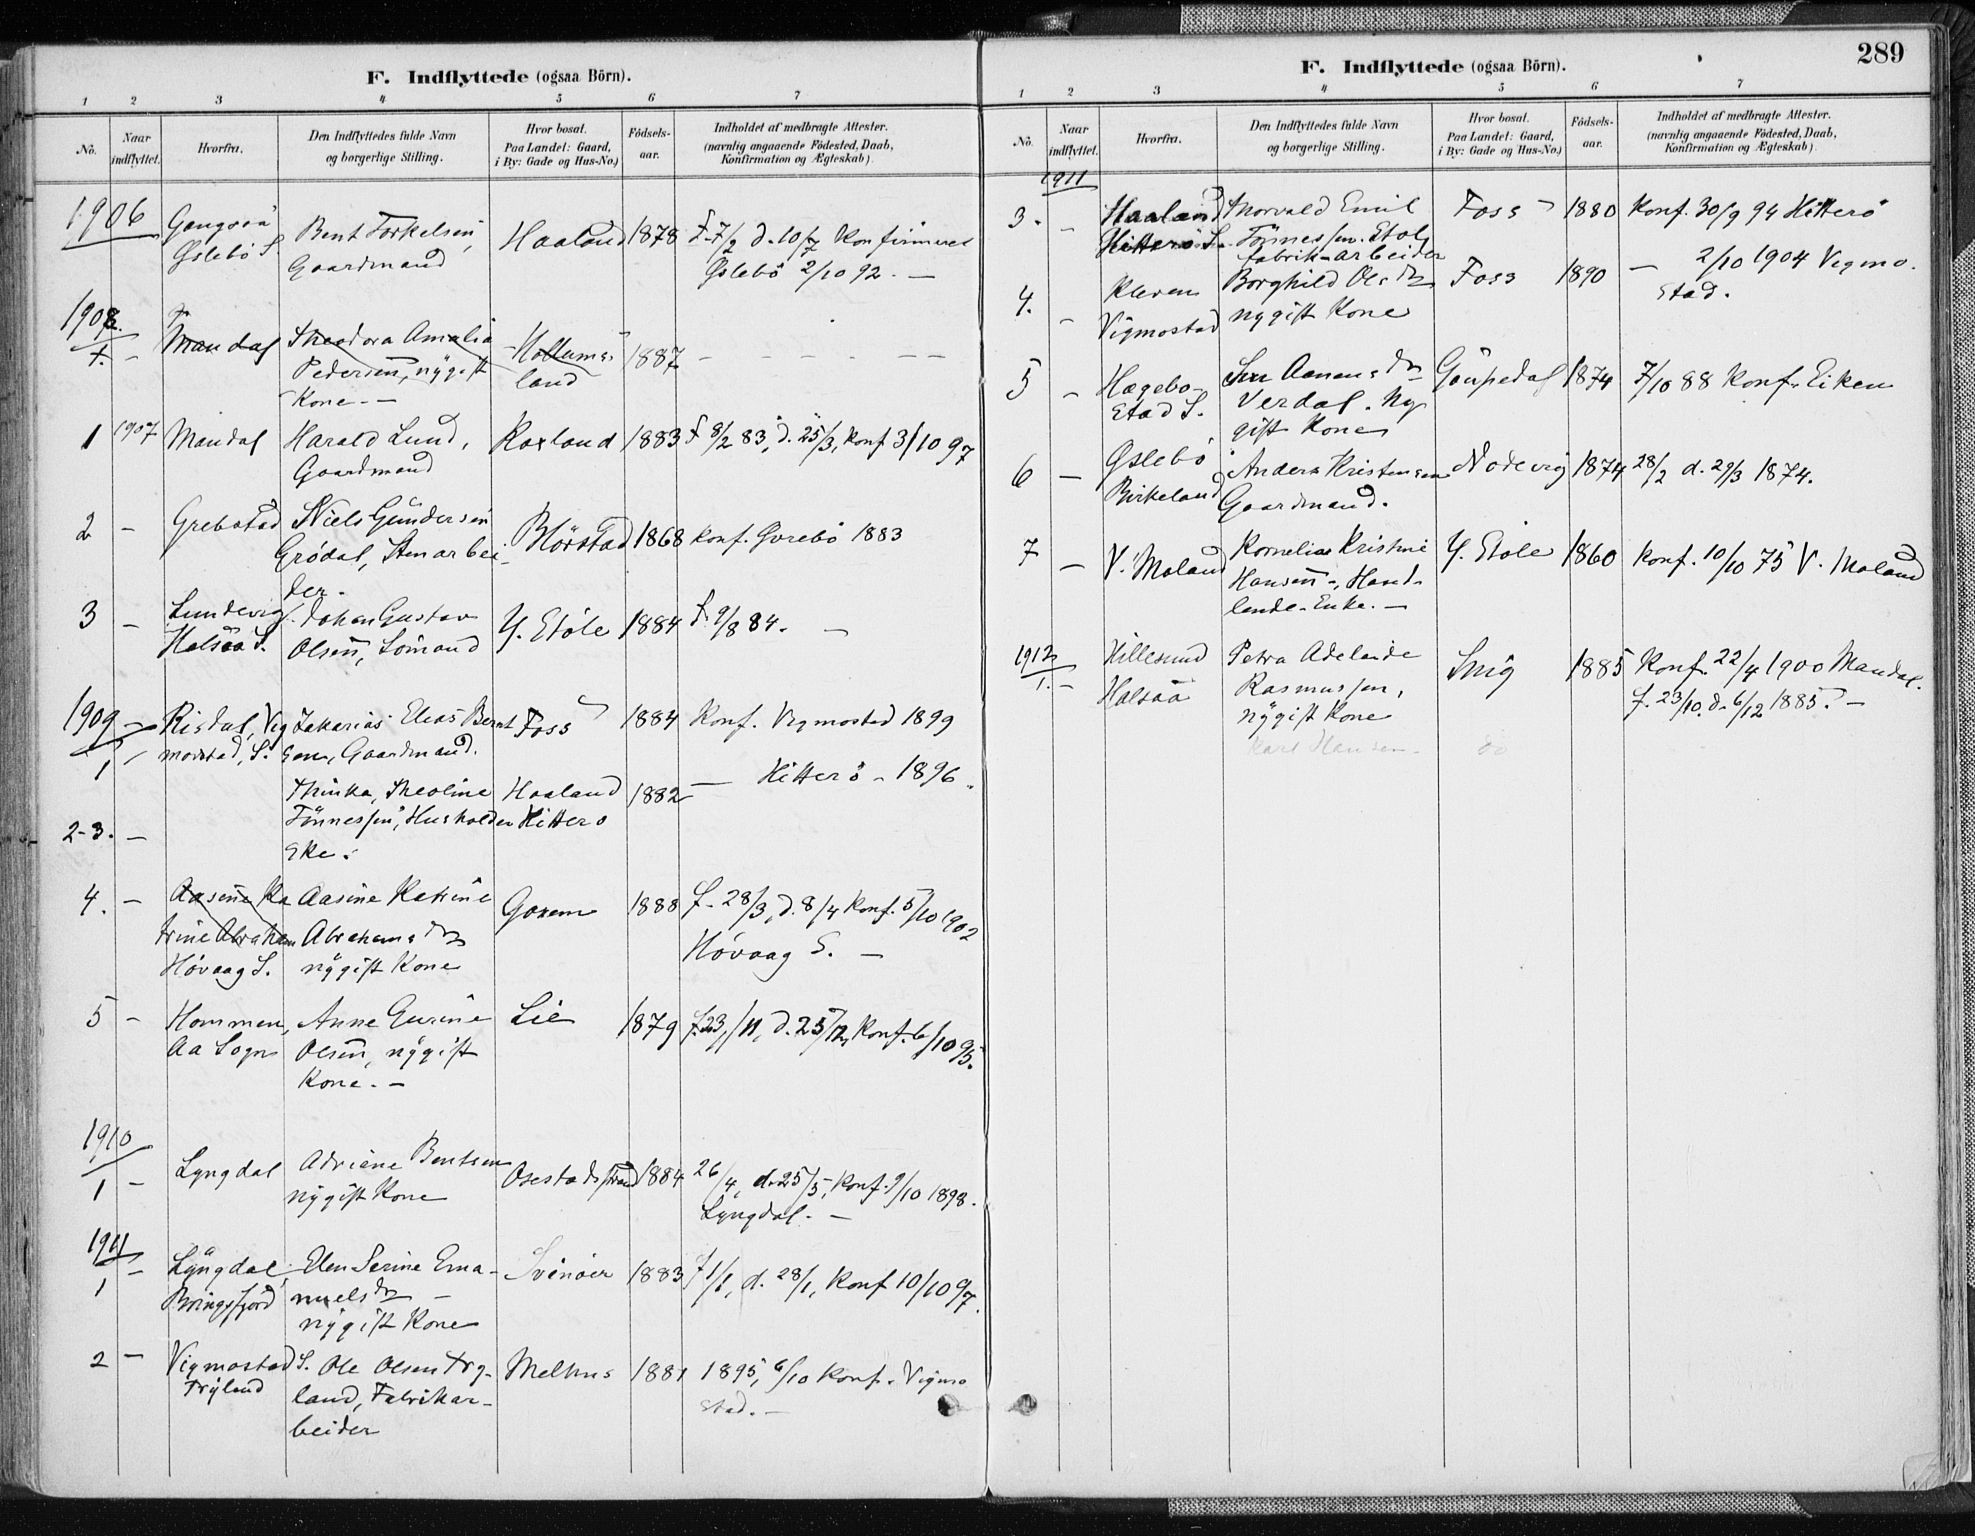 F. Indflyttede (ogsaa Börn).
1 2 3 4 5 6 7
No.
Naar
indflyttet.
Hvorfra.
Den Indflyttedes fulde Navn
og borgerlige Stilling.
Hvor bosat.
Paa Landet: Gaard,
i By: Gade og Hus-No.)
Födsels-
aar.
Indholdet af medbragte Attester.
(navnlig angaaende Födested, Daab,
Konfirmation og Ægteskab)
1906
Øslebö S.
Bent Torkelsen,
Gaardmand
Haaland
1878
f. 7/2 d. 10/7 Konfirmeret
Öslebö 2/10 92. —
1908.
1. -
Mandal
Theodora Amalia
Pedersen, nygift
Kone. —
land
1887
1
1907
Mandal
Harald Lund,
Gaardmand
Roxland
1883
f 8/2 83, d. 25/3, Konf 3/10 97
2 -
Niels Gundersen
Grödal, Stenarbei
der.
1868
Konf. 1883
3 -
Lundevig
Halsaa S.
Johan Gustav
Olsen, Sömand
Y. Stöle
1884
f. 9/8 84. —
1909 —
1
Risdal, Vig
mostad, S.
Zakarias Elias Bernt
sen, Gaardmand.
Foss
1884
Konf. Vigmostad 1899
2-3. —
Thinka, Theoline
Tönnessen, Husholder
ske.
Haaland
Hitterö
1882
— Hitterö - 1896.
4. -
Aasine Ka
trine Abraham
Hövaag S.
Aasine Katrine
Abrahamsdtr
nygift Kone
1888
f. 28/3, d. 8/4 Konf. 5/10 1902
Hövaag S. —
5 -
Hommen,
Aa Sogn
Anne Gurine
Olsen, nygift
Kone. —
Lie
1879
f. 23/11, d. 25/12, Konf. 6/10 95.
1910
1 -
Lyngdal
Adriane Bentsen
nygift Kone
Osestadstrand
1884
26/4, d. 25/5, Konf. 9/10 1898.
Lyngdal. —
1911
1 -
Lyngdal
Elen Serine Ema-
nuelsdtr —
nygift Kone
Svinöer
1883
f 1/1, d. 28/1, Konf 10/10 97.
2 -
Vigmostad S.
Tryland
Ole Olsen Try-
land, Fabrikar-
beider
Melhus
1881
1895, 6/10 Konf. Vigmo
stad. —
289
F. Indflyttede (ogsaa Börn).
1 2 3 4 5 6 7
No.
Naar
indflyttet.
Hvorfra.
Den Indflyttedes fulde Navn
og borgerlige Stilling.
Hvor bosat.
Paa Landet: Gaard,
i By: Gade og Hus-No.)
Födsels-
aar.
Indholdet af medbragte Attester.
(navnlig angaaende Födested, Daab,
Konfirmation og Ægteskab)
1911
3. -
Haaland
Hitterö S.
Thorvald Emil
Tönnessen
fabrik-arbeider
Foss
1880
Konf. 30/9 94 Hitterö
4. -
Kleven
Vigmostad
Borghild Olsdtr
nygift Kone
Foss
1890
— 2/10 1904 Vigmo-
stad.
5 -
Hægebo-
stad S.
Aanensdtr
Verdal. Ny
gift Kone
1874
7/10 88 Konf. Eiken
6 —
Öslebö
Birkeland
Anders Kristensen
Gaardmand.
Nodevig
1874
28/2 d. 29/3 1874.
7 -
V. Moland
Kornelia Kristine
Hansen, Hand-
lende-Enke. —
Y. Stöle
1860
Konf. 10/10 75 V. Moland
1912
1. -
Hillesund
Halsaa
Petra Adelaide
Rasmussen,
nygift Kone
Karl Hansen
do
Snig
1885
Konf. 22/4 1900 Mandal.
f. 23/10. d. 6/12 1885. —